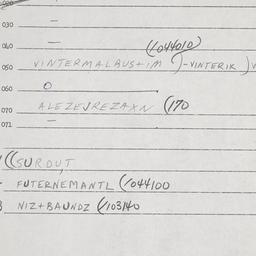 020
030 —
040 — (1044010)
050 VINTERMALBUS+IM )-VINTERIK )V
060 O
070 ALEZEJREZAXN (170
071 —
((SURDUT
FUTERNEMANTL (1044100
3 NIZ+BAUNDZ (1103140